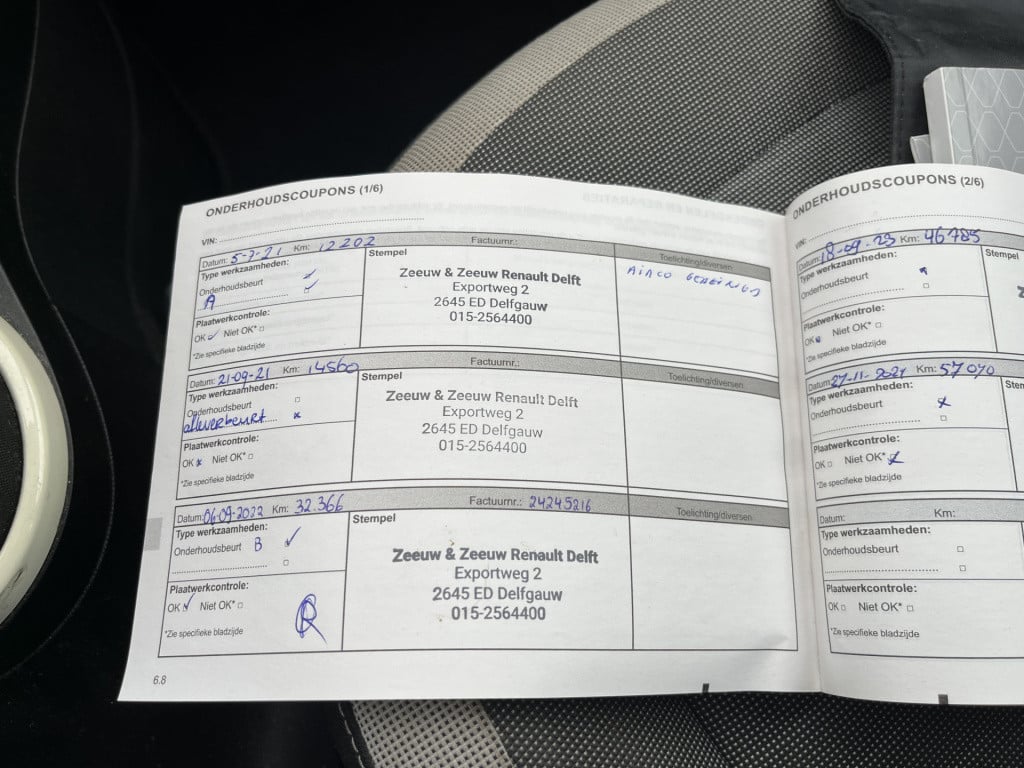 ONDERHOUDSCOUPONS (1/6)
VIN:
Datum: 5-7-21 Km: 12202 Factuurnr.:
Type werkzaamheden:
Onderhoudsbeurt
A
Plaatwerkcontrole:
OK Niet OK*
*Zie specifieke bladzijde
Stempel
Zeeuw & Zeeuw Renault Delft
Exportweg 2
2645 ED Delfgauw
015-2564400
Toelichting/diversen
AIRCO
Datum: 21-09-21 Km: 14560 Factuurnr.:
Type werkzaamheden:
Onderhoudsbeurt
Plaatwerkcontrole:
OK Niet OK*
*Zie specifieke bladzijde
Stempel
Zeeuw & Zeeuw Renault Delft
Exportweg 2
2645 ED Delfgauw
015-2564400
Toelichting/diversen
Datum: 06-09-2022 Km: 32.366 Factuurnr.: 24245216
Type werkzaamheden:
Onderhoudsbeurt B
Plaatwerkcontrole:
OK Niet OK*
*Zie specifieke bladzijde
Stempel
Zeeuw & Zeeuw Renault Delft
Exportweg 2
2645 ED Delfgauw
015-2564400
Toelichting/diversen
6.8
ONDERHOUDSCOUPONS (2/6)
VIN:
Datum: 18-09-23 Km: 46785
Type werkzaamheden:
Onderhoudsbeurt
Plaatwerkcontrole:
OK Niet OK*
*Zie specifieke bladzijde
Stempel
Datum: 27-11-2024 Km: 57070
Type werkzaamheden:
Onderhoudsbeurt
Plaatwerkcontrole:
OK Niet OK*
*Zie specifieke bladzijde
Datum: Km:
Type werkzaamheden:
Onderhoudsbeurt
Plaatwerkcontrole:
OK Niet OK*
*Zie specifieke bladzijde